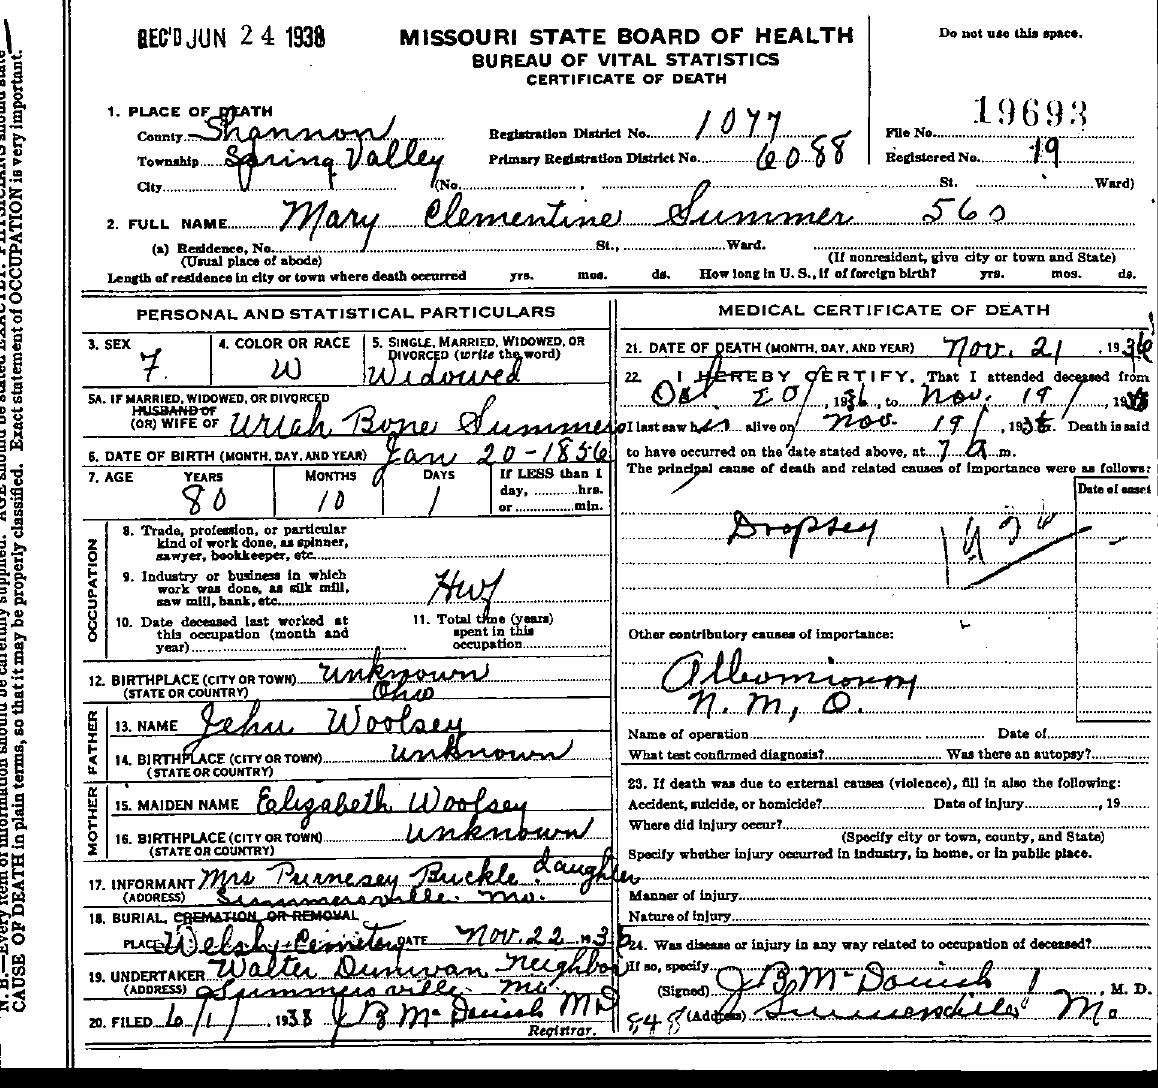 REC'D JUN 24 1938
MISSOURI STATE BOARD OF HEALTH
BUREAU OF VITAL STATISTICS
CERTIFICATE OF DEATH
Do not use this space.
19693
1. PLACE OF DEATH
County Shannon Registration District No. 1077 File No.
Township Spring Valley Primary Registration District No. 6088 Registered No. 19
City (No. St. Ward)
2. FULL NAME Mary Clementine Summer 560
(a) Residence, No. St., Ward.
(Usual place of abode) (If nonresident, give city or town and State)
Length of residence in city or town where death occurred yrs. mos. ds. How long in U. S., if of foreign birth? yrs. mos. ds.
PERSONAL AND STATISTICAL PARTICULARS
3. SEX F. 4. COLOR OR RACE W 5. SINGLE, MARRIED, WIDOWED, OR DIVORCED (write the word) Widowed
5A. IF MARRIED, WIDOWED, OR DIVORCED
HUSBAND OF
(OR) WIFE OF Uriah Bone Summers
6. DATE OF BIRTH (MONTH, DAY, AND YEAR) Jan 20-1856
7. AGE YEARS MONTHS DAYS If LESS than 1
80 10 1 day, hrs.
or min.
OCCUPATION
8. Trade, profession, or particular
kind of work done, as spinner,
sawyer, bookkeeper, etc.
9. Industry or business in which
work was done, as silk mill,
saw mill, bank, etc. Hwf
10. Date deceased last worked at
this occupation (month and
year)
11. Total time (years)
spent in this
occupation
12. BIRTHPLACE (CITY OR TOWN) unknown
(STATE OR COUNTRY) Ohio
FATHER
13. NAME Jehu Woolsey
14. BIRTHPLACE (CITY OR TOWN) unknown
(STATE OR COUNTRY)
MOTHER
15. MAIDEN NAME Eelizabeth Woolsey
16. BIRTHPLACE (CITY OR TOWN) unknown
(STATE OR COUNTRY)
17. INFORMANT Mrs Purnesey Buckle daughter
(ADDRESS) Summersville. Mo.
18. BURIAL, CREMATION, OR REMOVAL
PLACE Welsh Cemetery DATE Nov. 22 1936
19. UNDERTAKER Walter Dunivan Neighbor
(ADDRESS) Summersville. Mo
20. FILED 6/1/, 1938 J B McDavish MD
Registrar.
MEDICAL CERTIFICATE OF DEATH
21. DATE OF DEATH (MONTH, DAY, AND YEAR) Nov. 21, 1936
22. I HEREBY CERTIFY, That I attended deceased from
Oct. 20/, 1936, to Nov. 19/, 1936
I last saw her alive on Nov. 19/, 1936 Death is said
to have occurred on the date stated above, at 7 A. m.
The principal cause of death and related causes of importance were as follows:
Date of onset
Dropsey
Other contributory causes of importance:
N. M, O.
Name of operation Date of
What test confirmed diagnosis? Was there an autopsy?
23. If death was due to external causes (violence), fill in also the following:
Accident, suicide, or homicide? Date of injury , 19
Where did injury occur?
(Specify city or town, county, and State)
Specify whether injury occurred in industry, in home, or in public place.
Manner of injury
Nature of injury
24. Was disease or injury in any way related to occupation of deceased?
If so, specify
(Signed) J B McDavish, M. D.
(Address) Summersville Mo
N. B.—Every item of information should be carefully supplied. AGE should be stated EXACTLY. PHYSICIANS should state
CAUSE OF DEATH in plain terms, so that it may be properly classified. Exact statement of OCCUPATION is very important.